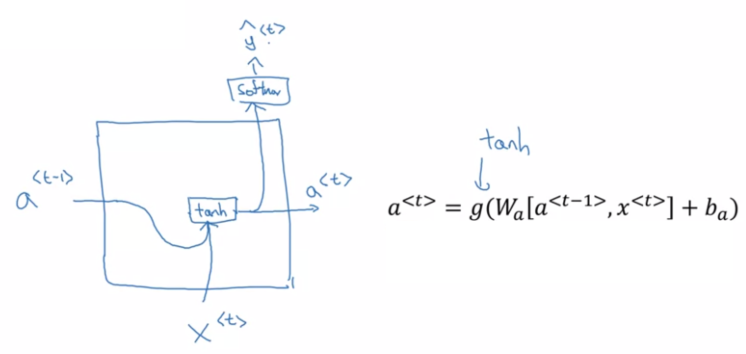 ŷ<t>
softmax
a<t-1>
a<t>
tanh
x<t>
tanh
a<t> = g(Wₐ[a<t−1>, x<t>] + bₐ)